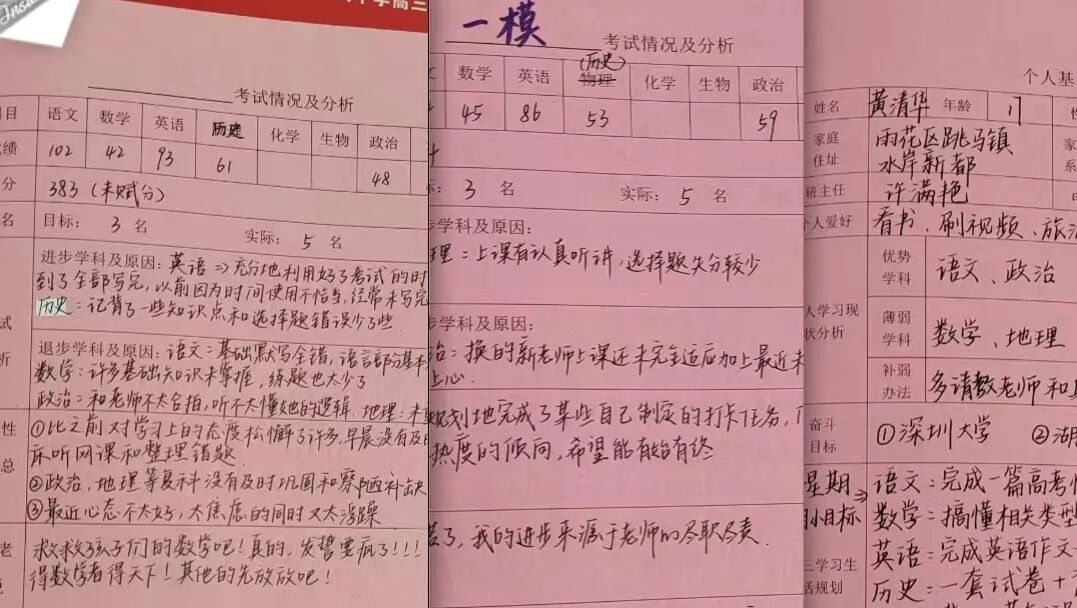 Insi
中学高三
考试情况及分析
目 语文 数学 英语 历史 化学 生物 政治
绩 102 42 93 61 48
分 383 (未赋分)
名 目标: 3 名 实际: 5 名
进步学科及原因: 英语⇒充分地利用好了考试的时
到了全部写完, 以前因为时间使用不恰当, 经常未写完
历史: 记背了一些知识点和选择题错误少了些
试
退步学科及原因: 语文: 基础默写全错, 语言部分基本
数学: 许多基础知识未掌握, 练题也太少了
析
政治: 和老师不太合拍, 听不太懂她的逻辑. 地理: 未
性 ①比之前对学习上的态度松懈了许多, 早晨没有及时
床听网课和整理错题
总 ②政治, 地理等复科没有及时巩固和察陋补缺
③最近心态不太好, 太焦虑的同时又太浮躁
老 救救孩子们的数学吧! 真的, 发誓要疯了!!!
得数学者得天下! 其他的先放放吧!
一模
考试情况及分析
(历史)
文 数学 英语 物理 化学 生物 政治
45 86 53 59
标: 3 名 实际: 5 名
步学科及原因:
理: 上课有认真听讲, 选择题失分较少
步学科及原因:
治: 换的新老师上课还未完全适应加上最近未
上心.
规划地完成了某些自己制定的打卡任务,
热度的倾向, 希望能有始有终
了, 我的进步来源于老师的尽职尽责.
个人基
姓名 黄清华 年龄 17 性
家庭住址 雨花区跳马镇 家
水岸新都 系
班主任 许满艳
个人爱好 看书、刷视频、旅
优势学科 语文、政治
人学习现状分析
薄弱学科 数学、地理
补弱办法 多请教老师和
奋斗目标 ①深圳大学 ②湖
星期⇒ 语文: 完成一篇高考
小目标 数学: 搞懂相关类型
三学习生 英语: 完成英语作文
活规划 历史: 一套试卷+